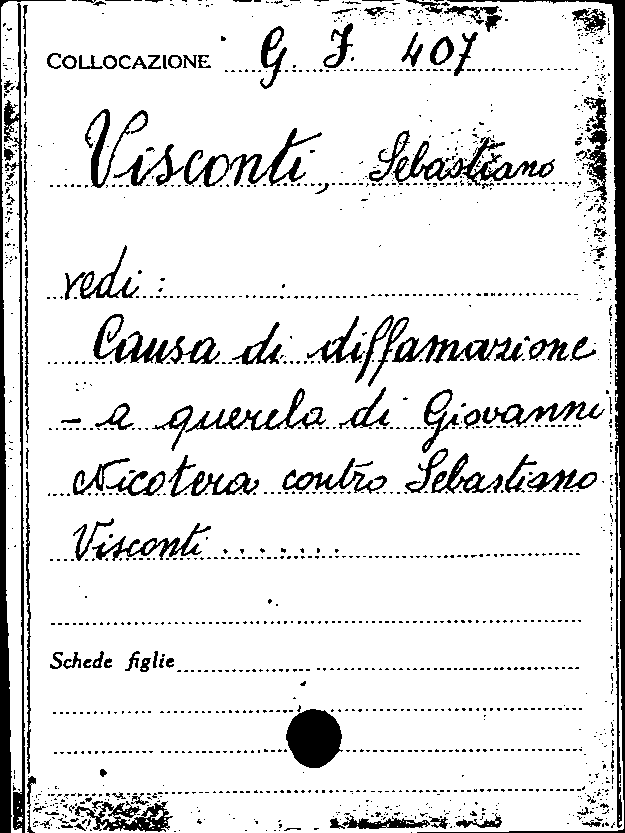 COLLOCAZIONE G. J. 407
Visconti, Sebastiano
vedi :
Causa di diffamazione
- a querela di Giovanni
Nicotera contro Sebastiano
Visconti .......
Schede figlie